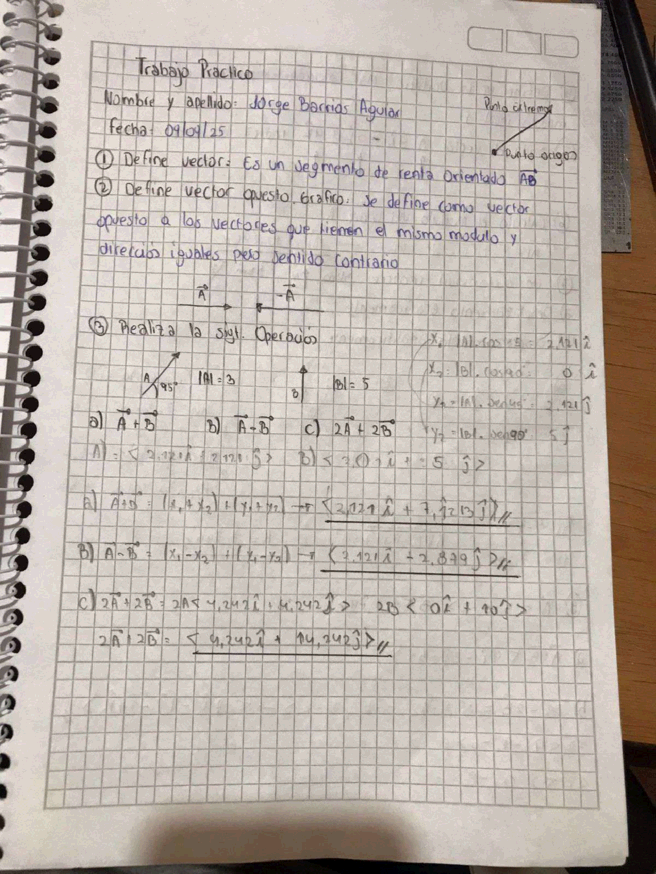 Trabajo Practico
Nombre y apellido: Jorge Barrios Aguiar
Punto extremo
fecha: 09/09/25
Punto origen
① Define vector: Es un segmento de renta orientado AB
② Define vector opuesto. Grafico: se define como vector
opuesto a los vectores que tienen el mismo modulo y
direccio iguales pero sentido contrario
A -A
③ Realiza la sigt. Operació
A 45° |A|= 3 B |B|= 5
x₁ = |A|. cos 45 = 2.121 î
x₂ = |B|. cos 90° 0 î
y₁ = |A|. sen 45° 2.121 ĵ
y₂ = |B|. sen 90° 5 ĵ
a) A + B b) A - B c) 2A + 2B
A) = < 2.121 î + 2.121 ĵ > B) < î + 5 ĵ >
A) A+B = (x₁ + x₂) + (y₁ + y₂) → < 2,121 î + 7, ĵ >//
B) A-B = (x₁ - x₂) + (y₁ - y₂) → < 2,121 î - 2.879 ĵ >//
C) 2A + 2B = 2A < 4,242 î + 4,242 ĵ > 2B < 0 î + 10 ĵ >
2A + 2B = < 4,242 î + 14,242 ĵ >//